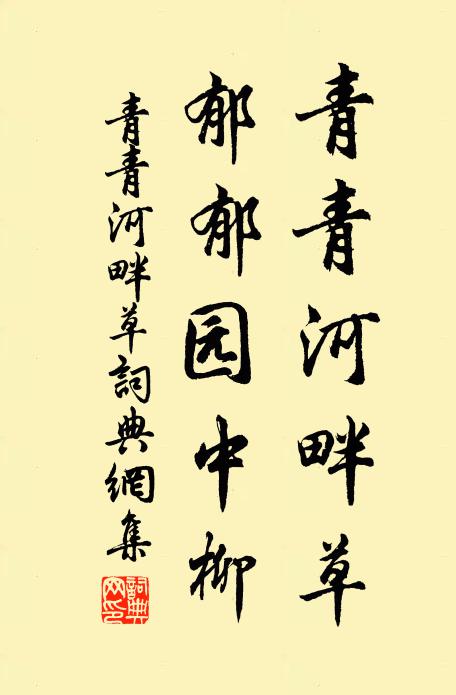 青青河畔草
郁郁园中柳
青青河畔草詞典網集
詞典网印